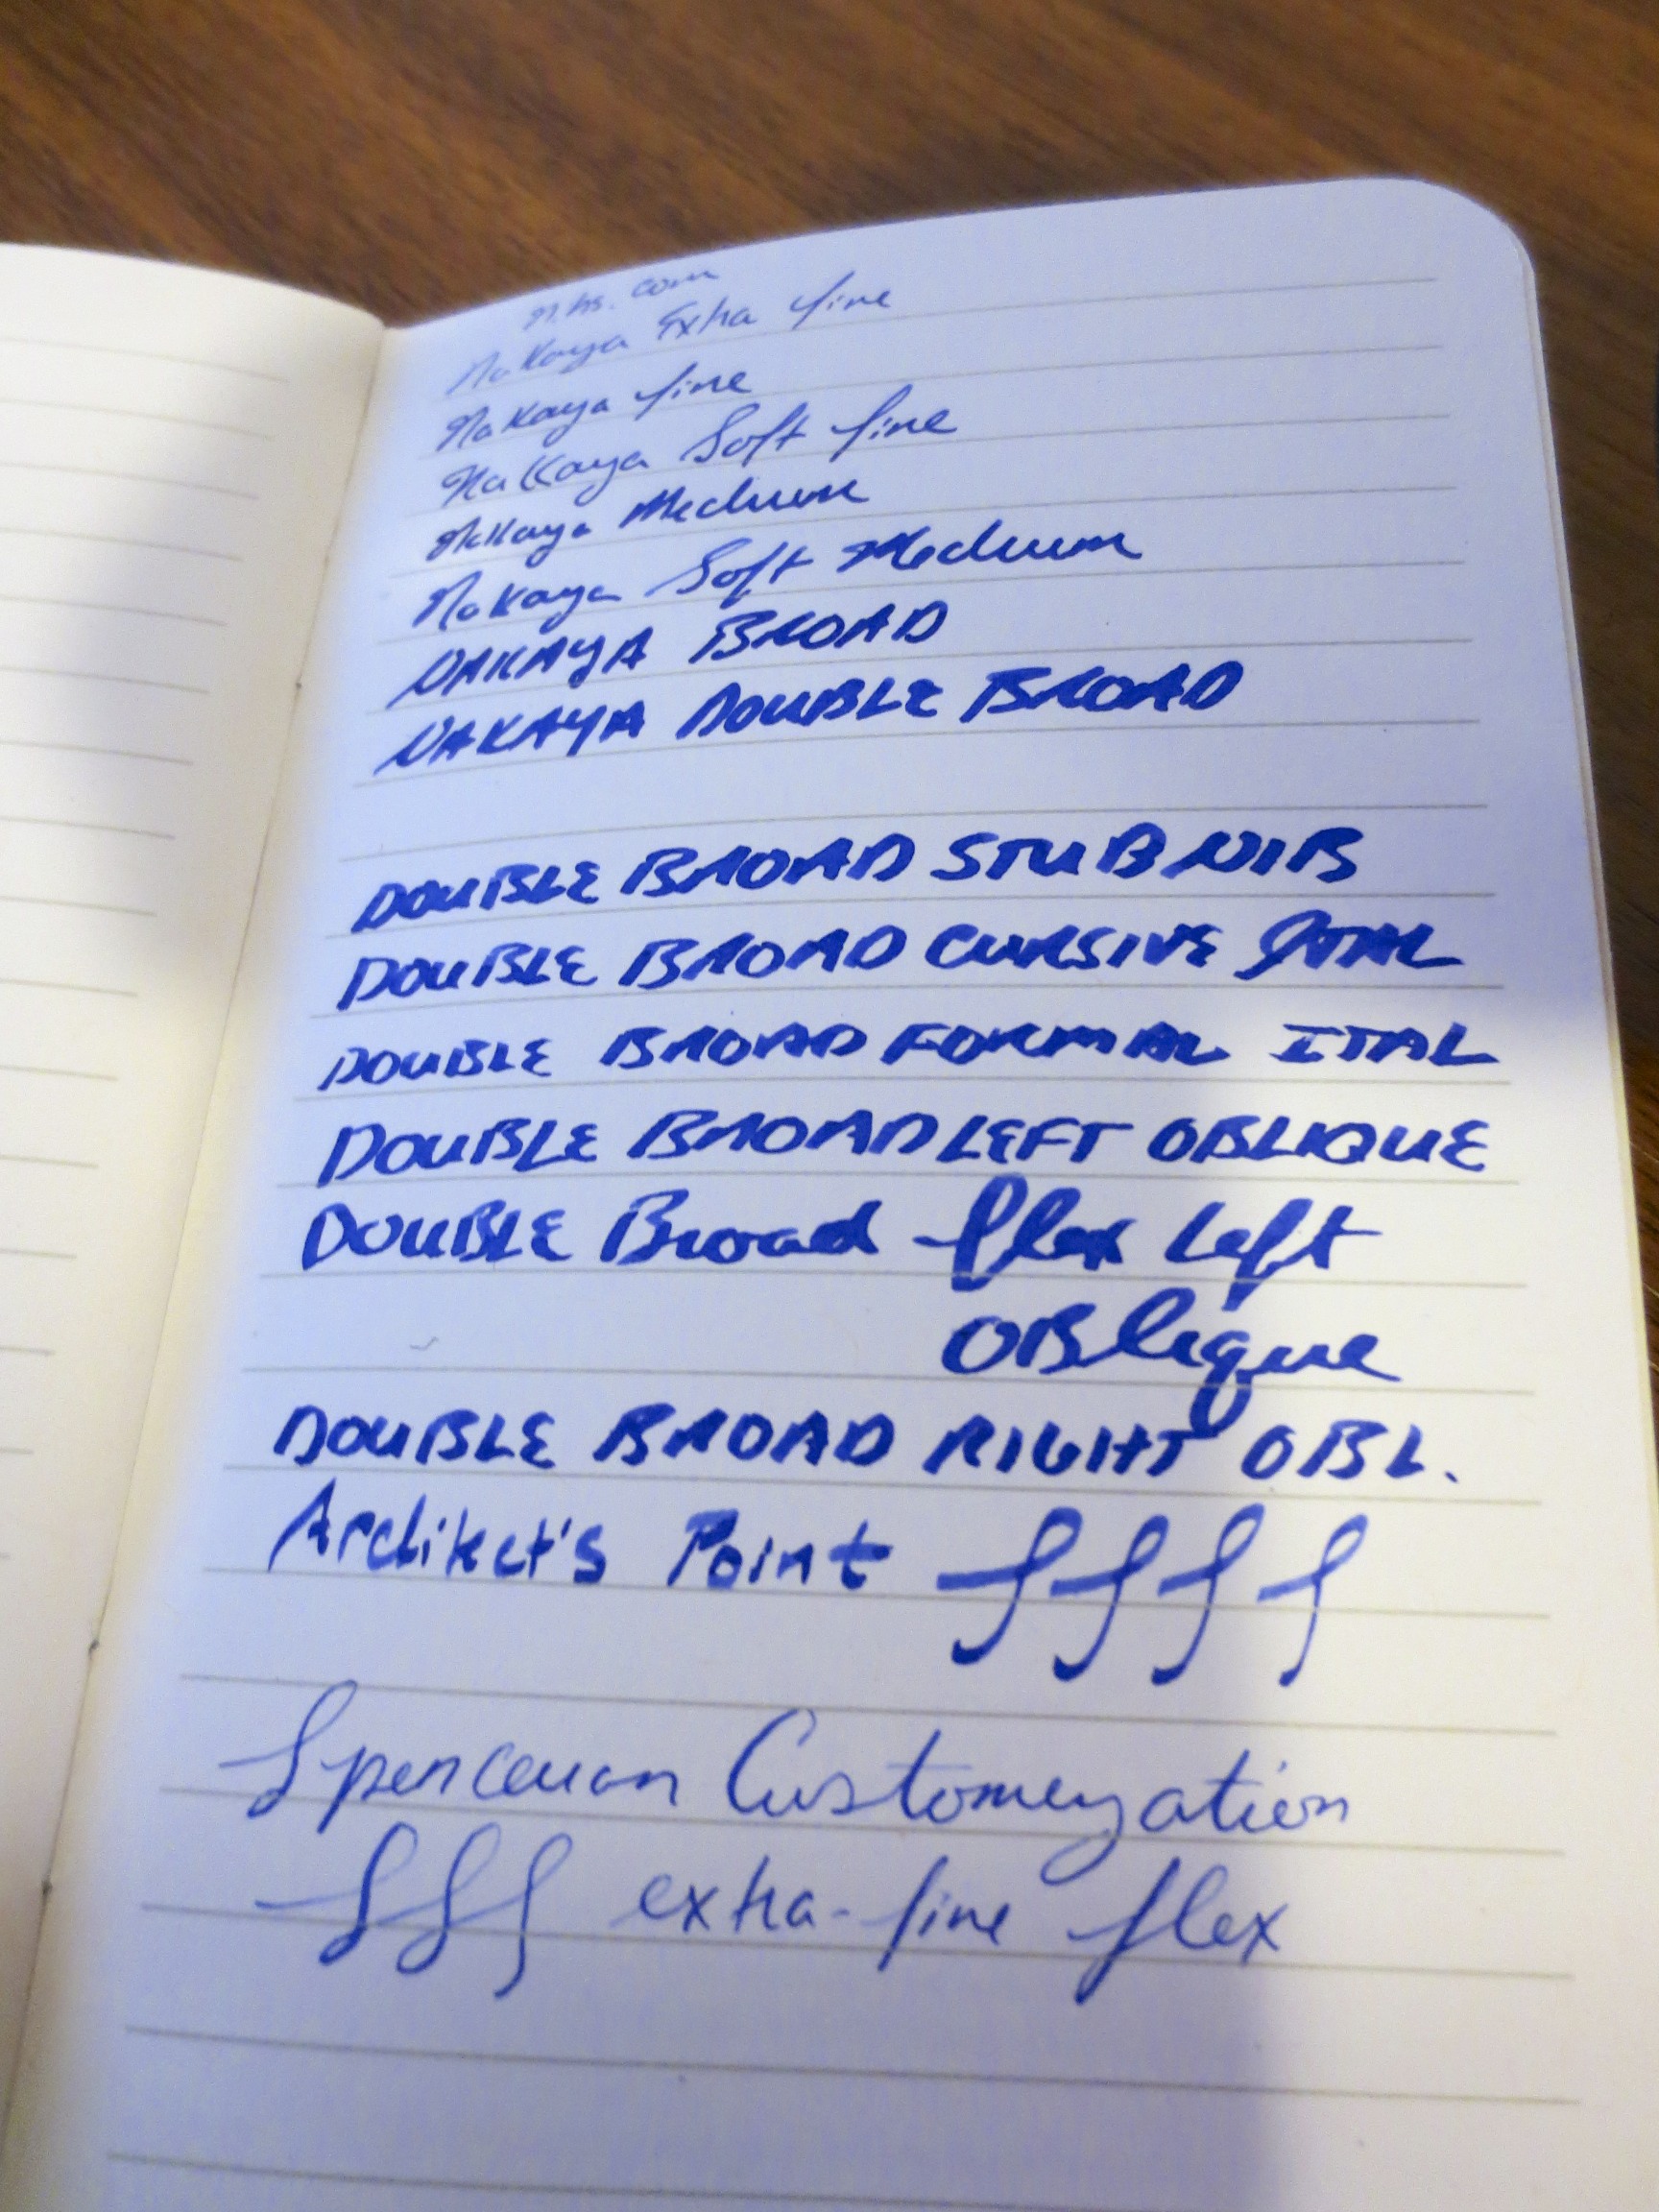 nibs.com
Nakaya Extra fine
Nakaya fine
Nakaya Soft fine
Nakaya Medium
Nakaya Soft Medium
NAKAYA BROAD
NAKAYA DOUBLE BROAD
DOUBLE BROAD STUB NIB
DOUBLE BROAD CURSIVE ITAL
DOUBLE BROAD FORMAL ITAL
DOUBLE BROAD LEFT OBLIQUE
DOUBLE Broad flex Left
OBlique
DOUBLE BROAD RIGHT OBL.
Architect's Point ffff
Spencerian Customization
fff extra-fine flex